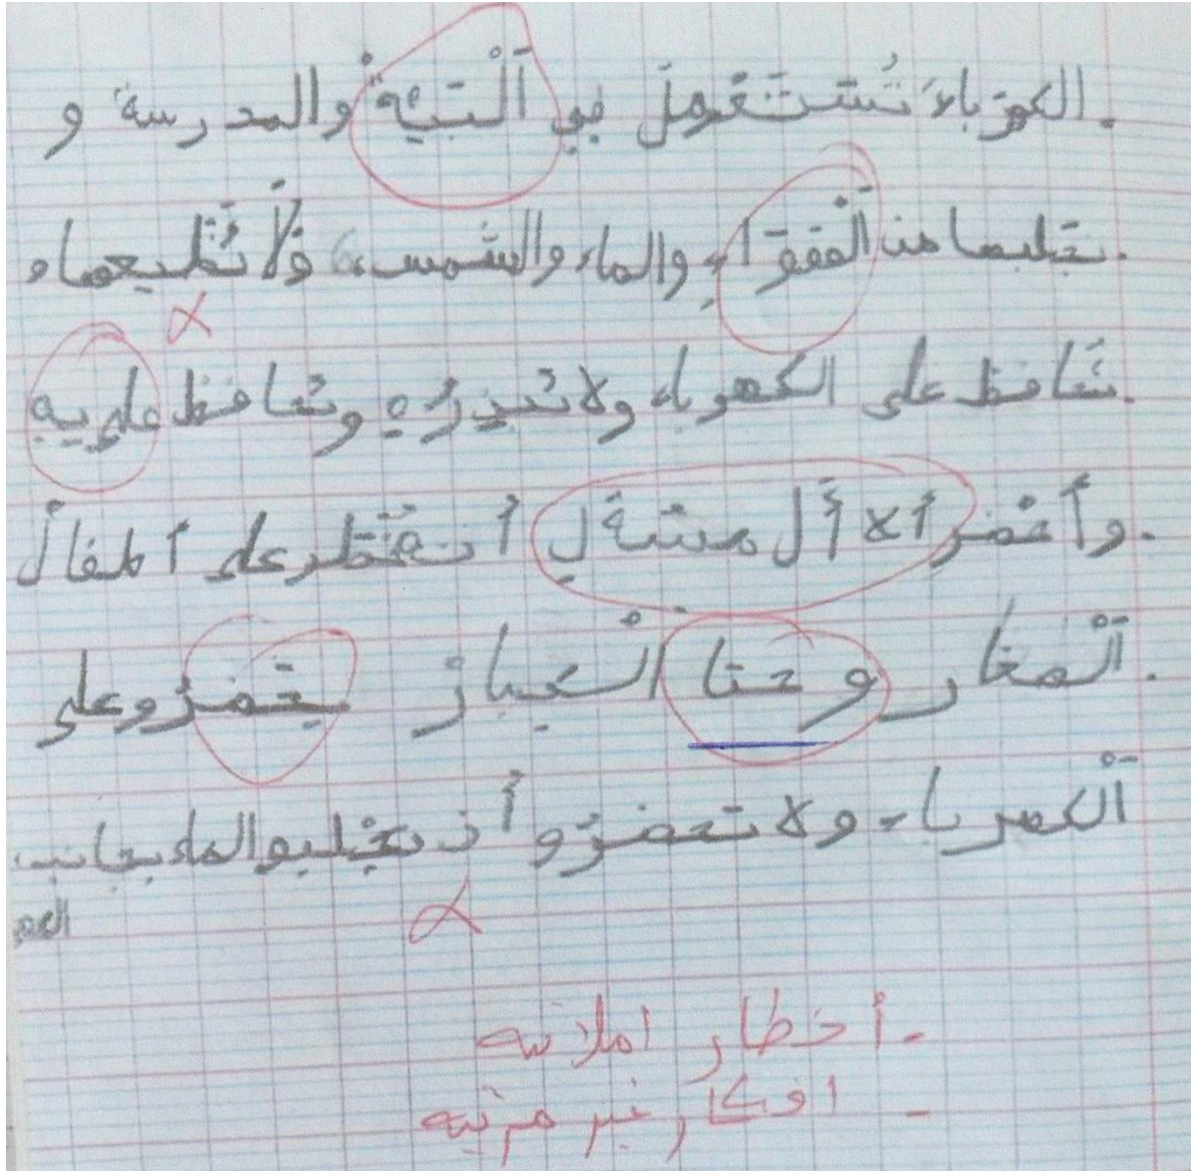 الكهرباءَ تُستَعْمل في اَلْبَيةْ والمدرسة و
نجلبها من اَلْفقرَاءِ والماء والشمس، فَلأ نُظَيعهاء
نُحافظ على الكهرباء ولا نبذرُهِ ونحافظ عليه
وأحضرُ ألا أل مشتعَلِ أن خطر على أطفالْ
اَلْصغار و حتا اْلكبارْ يحضرُو على
اَلْكهرباء ولا تحضرُو أن يجلبو الماء بجانب
الكهر
- أخطاء املائية
- افكار غير مرتبه